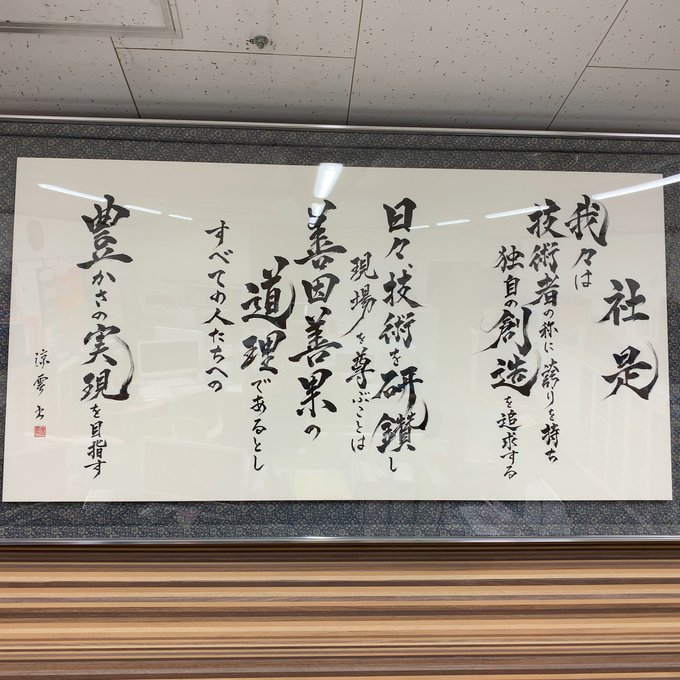 社是
我々は
技術者の称に誇りを持ち
独自の創造を追求する
日々、技術を研鑽し
現場を尊ぶことは
善因善果の
道理であるとし
すべての人たちへの
豊かさの実現を目指す
涼雪書